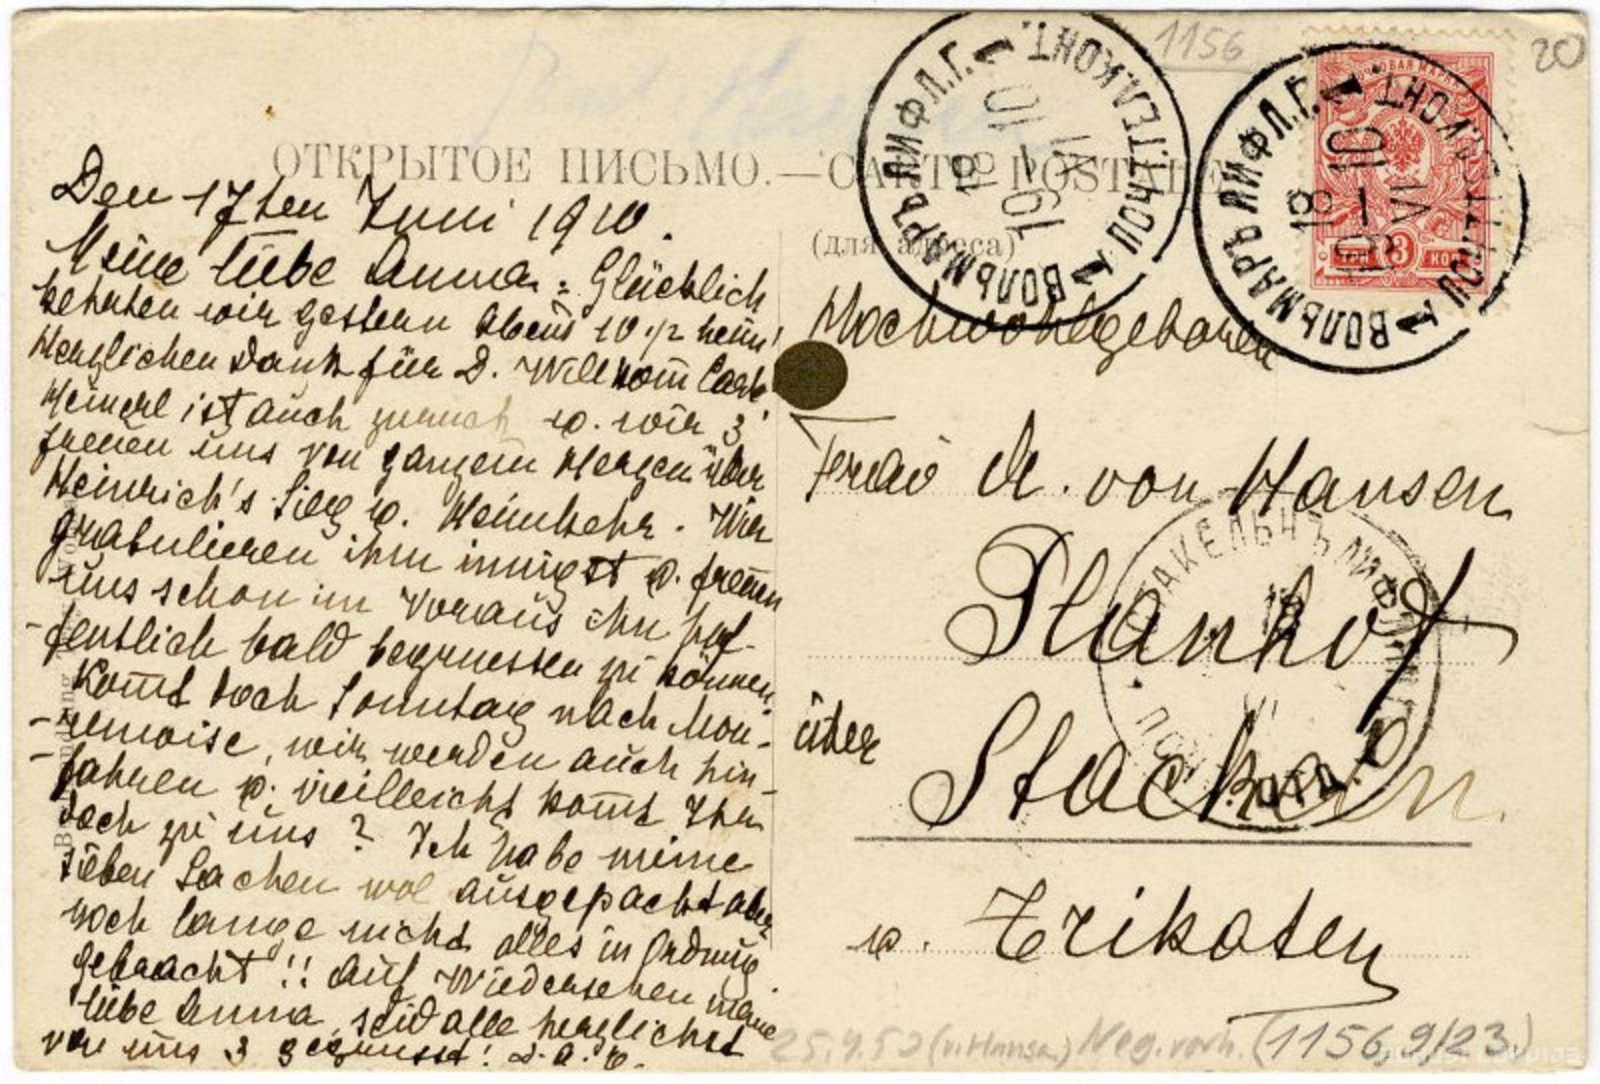 ОТКРЫТОЕ ПИСЬМО.—CARTE POSTALE
(для адреса)
1156
20
ВОЛЬМАРЪ ЛИФЛ.Г. 1 ПОЧТ.ТЕЛ.КОНТ. 1
ВОЛЬМАРЪ ЛИФЛ.Г. 1 ПОЧТ.ТЕЛ.КОНТ. 1
18
VI
10
ПОЧТОВАЯ МАРКА
ТРИ 3 КОП
Den 17ten Juni 1910.
Meine liebe Anna! Glücklich
kehrten wir gestern Abend 10 1/2 heim!
Herzlichen Dank für D. Willkom̅
Heinzel ist auch zurück u. wir 3
freuen uns von ganzem Herzen über
Heinrich's Sieg u. Heimkehr. Wir
gratulieren ihm innigst u. freuen
uns schon im Voraus ihn hof-
-fentlich bald begruessen zu können.
Kom̅t doch Sonntag nach Mon-
-remoise, wir werden auch hin-
-fahren u. vielleicht kom̅t Ihr
doch zu uns? Ich habe meine
sieben Sachen wol ausgepackt aber
noch lange nicht alles in Ordnung
gebracht!! Auf Wiedersehen meine
liebe Anna, seid alle herzlichst
von uns 3 gegrüsst!
Hochwohlgeboren
Frau A. von Hansen
Planhof
über
Stackeln
u. Trikaten
СТАКЕЛЬНЪ ЛИФЛ.
18
VI
(v. Hansen) Neg. vorh. (1156,9/23.)